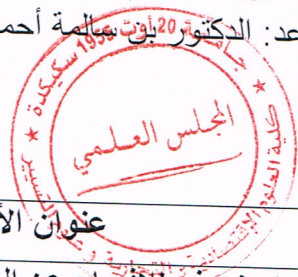 عد: الدكتور بن سالمة أحمد
جامعة 20 أوت 1955 سكيكدة
المجلس العلمي
كلية العلوم الإقتصادية و التجارية و علوم التسيير
عنوان الأ